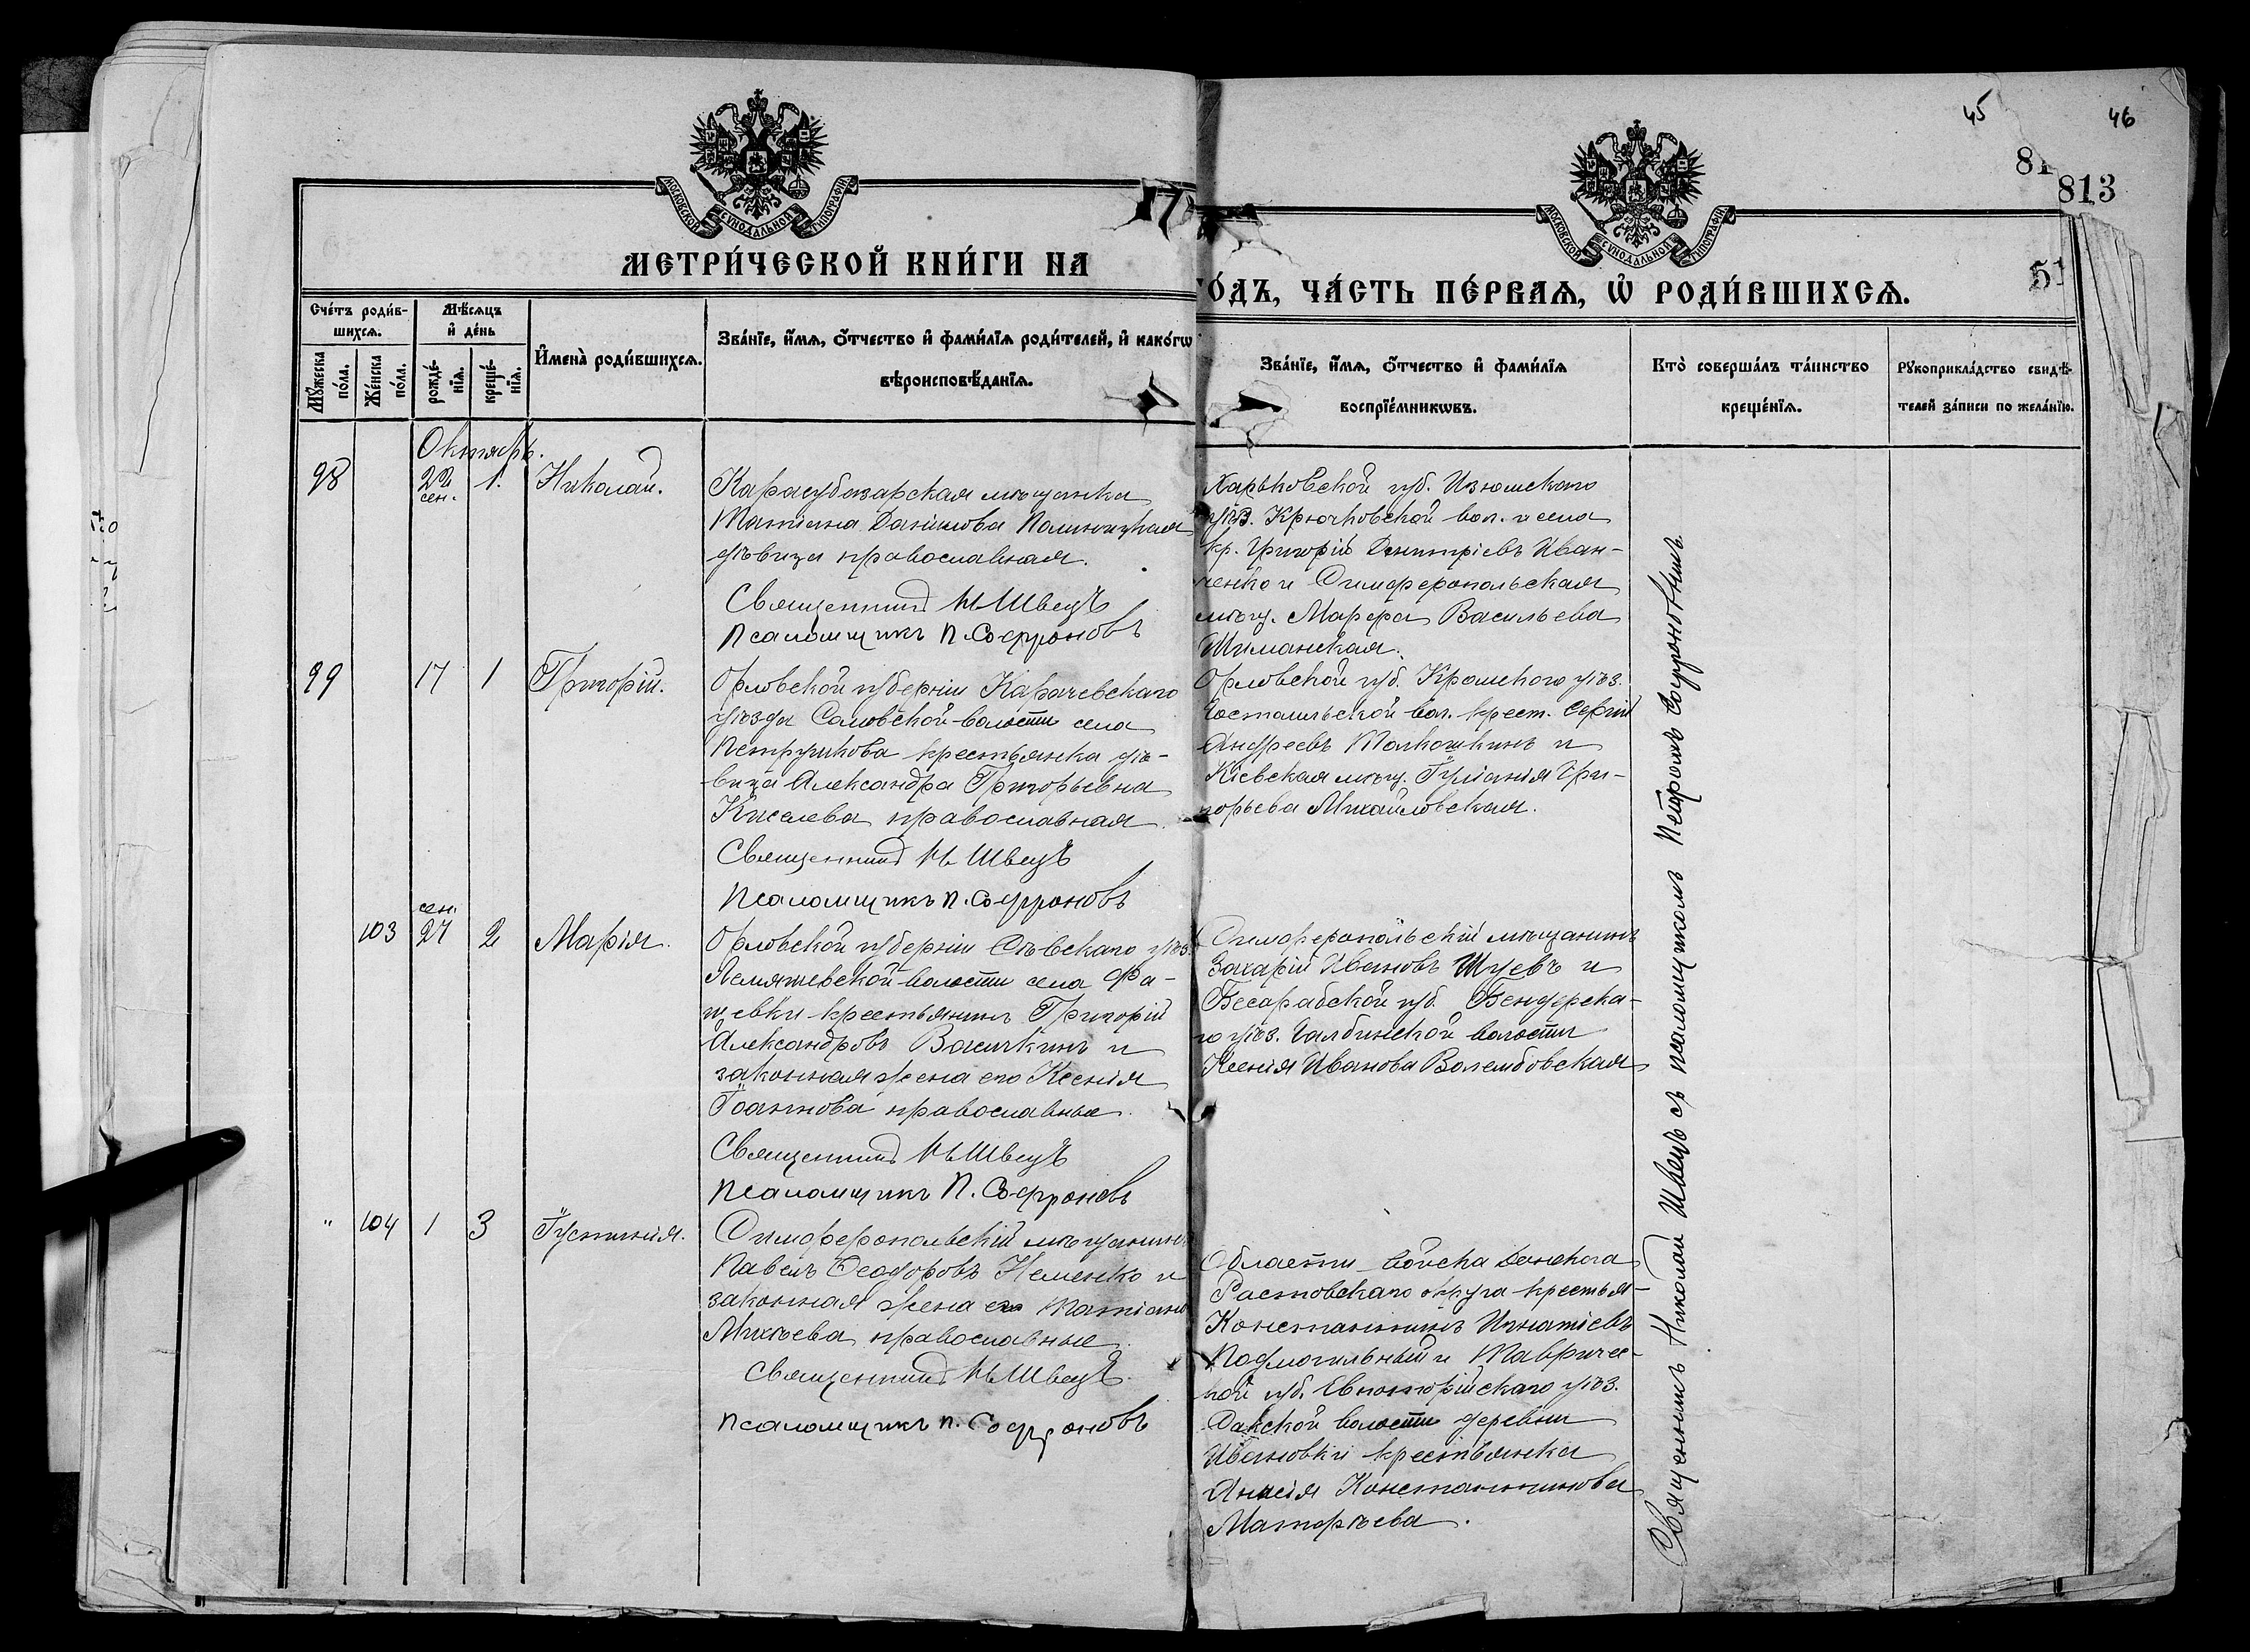 45
46
81
813
51
МОСКОВСКОЙ СУНОДАЛЬНОЙ ТИПОГРАФІИ
МОСКОВСКОЙ СУНОДАЛЬНОЙ ТИПОГРАФІИ
МЕТРИ́ЧЕСКОЙ КНИ́ГИ НА
ГО́ДЪ, ЧА́СТЬ ПЕ́РВАѦ, Ѡ҆ РОДИ́ВШИХСѦ.
Сче́тъ роди́в-
шихсѧ.
Мꙋ́жеска по́ла.
Же́нска по́ла.
Мѣ́сѧцъ
и҆ де́нь
рожде́-
нїѧ.
креще́-
нїѧ.
И҆мена̀ роди́вшихсѧ.
Зва́нїе, и҆́мѧ, ѻ҆́тчество и҆ фами́лїѧ роди́телей, и҆ како́гѡ
вѣроисповѣ́данїѧ.
Зва́нїе, и҆́мѧ, ѻ҆́тчество и҆ фами́лїѧ
воспрїе́мникѡвъ.
Кто̀ соверша́лъ та́инство
креще́нїѧ.
Рꙋкоприкла́дство свидѣ́-
телей за́писи по жела́нїю.
Октябрь.
98
22
сен.
1.
Николай.
Карасубазарская мѣщанка
Татіана Данилова
дѣвица православная.
Священникъ Н Швецъ
Псаломщикъ П. Софроновъ
Харьковской губ. Изюмскаго
уѣз. Крючковской вол. и села
кр. Григорій Димитріевъ Иван-
ченко и Симферопольская
мѣщ. Марфа Васильева
Шиманская.
99
17
1
Григорій.
Орловской губерніи Карачевскаго
уѣзда Саловской волости села
Петрушкова крестьянка дѣ-
вица Александра Григорьевна
Киселева православная
Священникъ Н Швецъ
Псаломщикъ П. Софроновъ
Орловской губ. Кромскаго уѣз.
Гостомльской вол. крест. Сергій
Андреевъ Толкошкинъ и
Кіевская мѣщ. Іуліанія Гри-
горьева Михайловская.
103
сен.
27
2
Марія.
Орловской губерніи Сѣвскаго уѣз.
Лемяшевской волости села Фа-
тевки крестьянинъ Григорій
Александровъ Васичкинъ и
законная жена его Ксенія
Іоаннова православные.
Священникъ Н Швецъ
Псаломщикъ П. Софроновъ
Симферопольскій мѣщанинъ
Захарій Ивановъ Шуевъ и
Бесарабской губ. Бендерска-
го уѣз. волости
Ксенія Иванова
"
104
1
3
Іустинія.
Симферопольскій мѣщанинъ
Павелъ Ѳеодоровъ Неменко и
законная жена его Татіана
Михѣева православные.
Священникъ Н Швецъ
Псаломщикъ П. Софроновъ
Области войска Донскога
Ростовскаго округа крестья-
Константинъ Игнатіевъ
Подмогильный и Тавричес-
кой губ. Евпаторійскаго уѣз.
Донской волости деревни
Ивановки крестьянка
Анисія Константинова
Матвѣева.
Священникъ Николай Швецъ съ псаломщикомъ Петромъ Софроновымъ